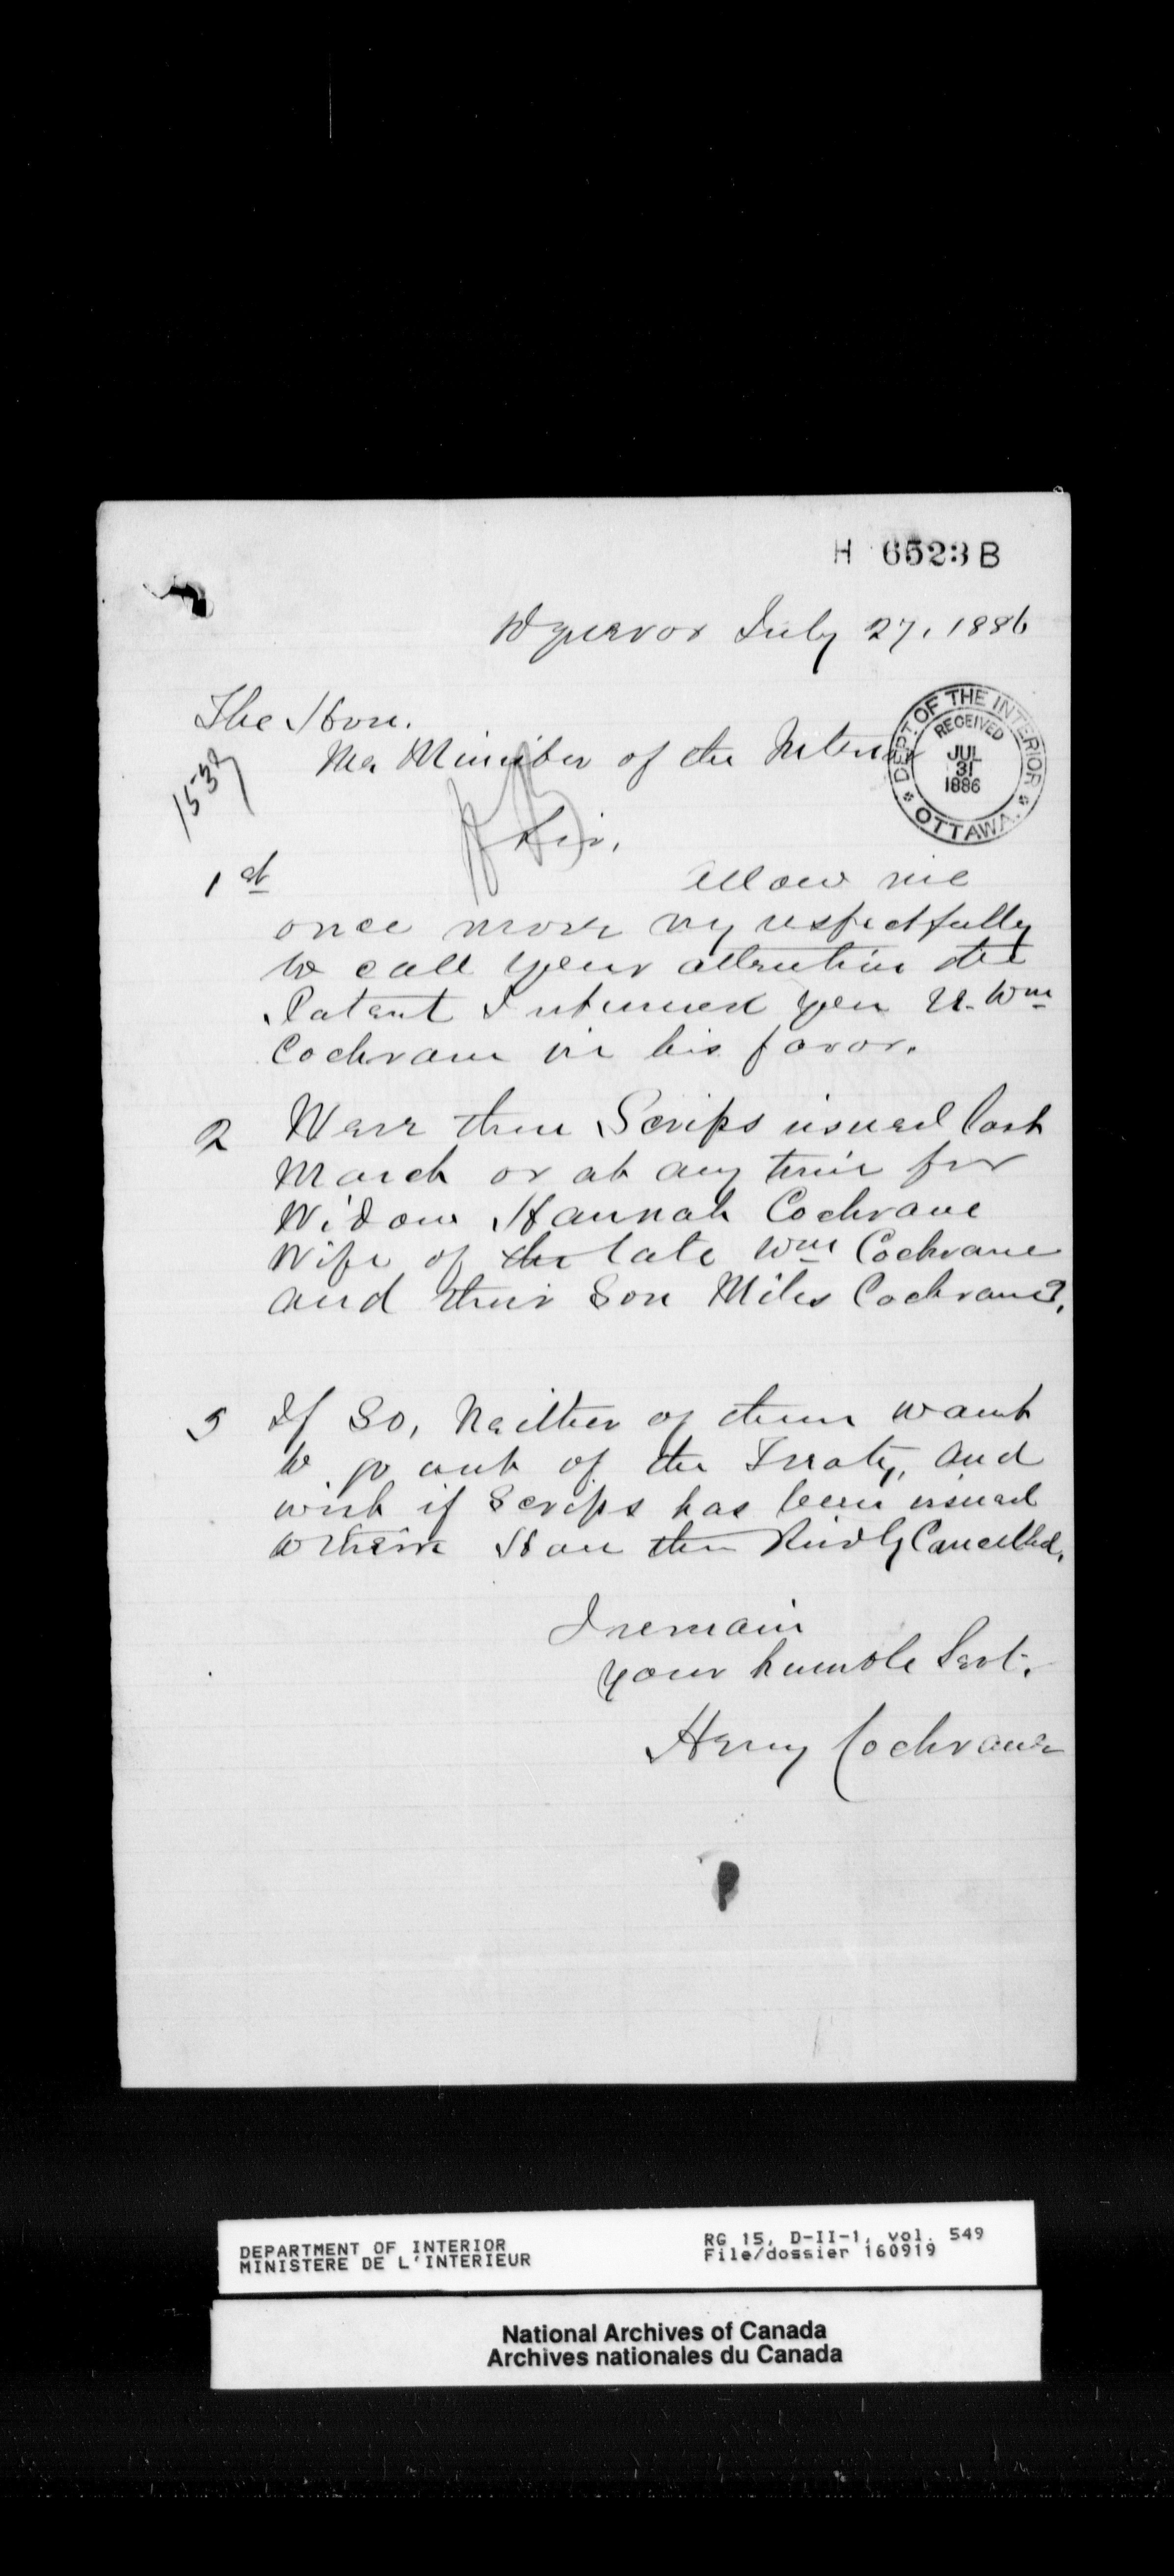 H 6523 B
Dynevor July 27, 1886
The Hon.
The Minister of the Interior
DEPT. OF THE INTERIOR
RECEIVED
JUL
31
1886
OTTAWA.
1539
Sir,
1st Allow me
once more respectfully
to call your attention the
Patent I returned you Wm
Cochrane in his favor.
2 Were there Scrips issued last
March or at any time for
Widow Hannah Cochrane
Wife of the late Wm Cochrane
and their Son Miles Cochrane?
3 If So, Neither of them want
to go out of the Treaty, and
wish if Scrips has been issued
to them Have them Kindly Cancelled.
I remain
your humble Servt.
Henry Cochrane
DEPARTMENT OF INTERIOR RG 15, D-II-1, vol. 549
MINISTERE DE L'INTERIEUR File/dossier 160919
National Archives of Canada
Archives nationales du Canada